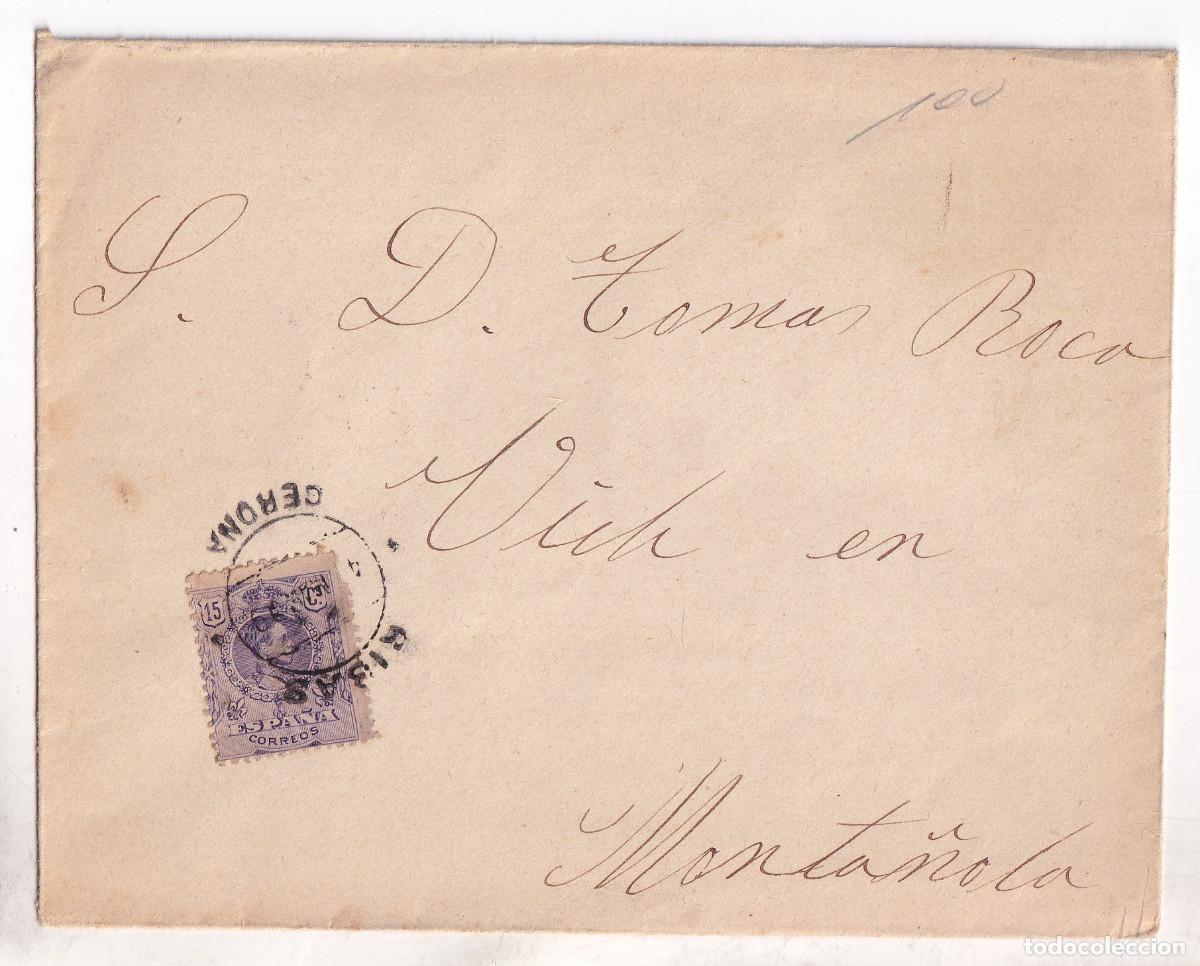 100
S. D. Tomas Roca
Vich en
GERONA
RIBAS
15 Cs.
ESPAÑA
CORREOS
Montañola
todocoleccion